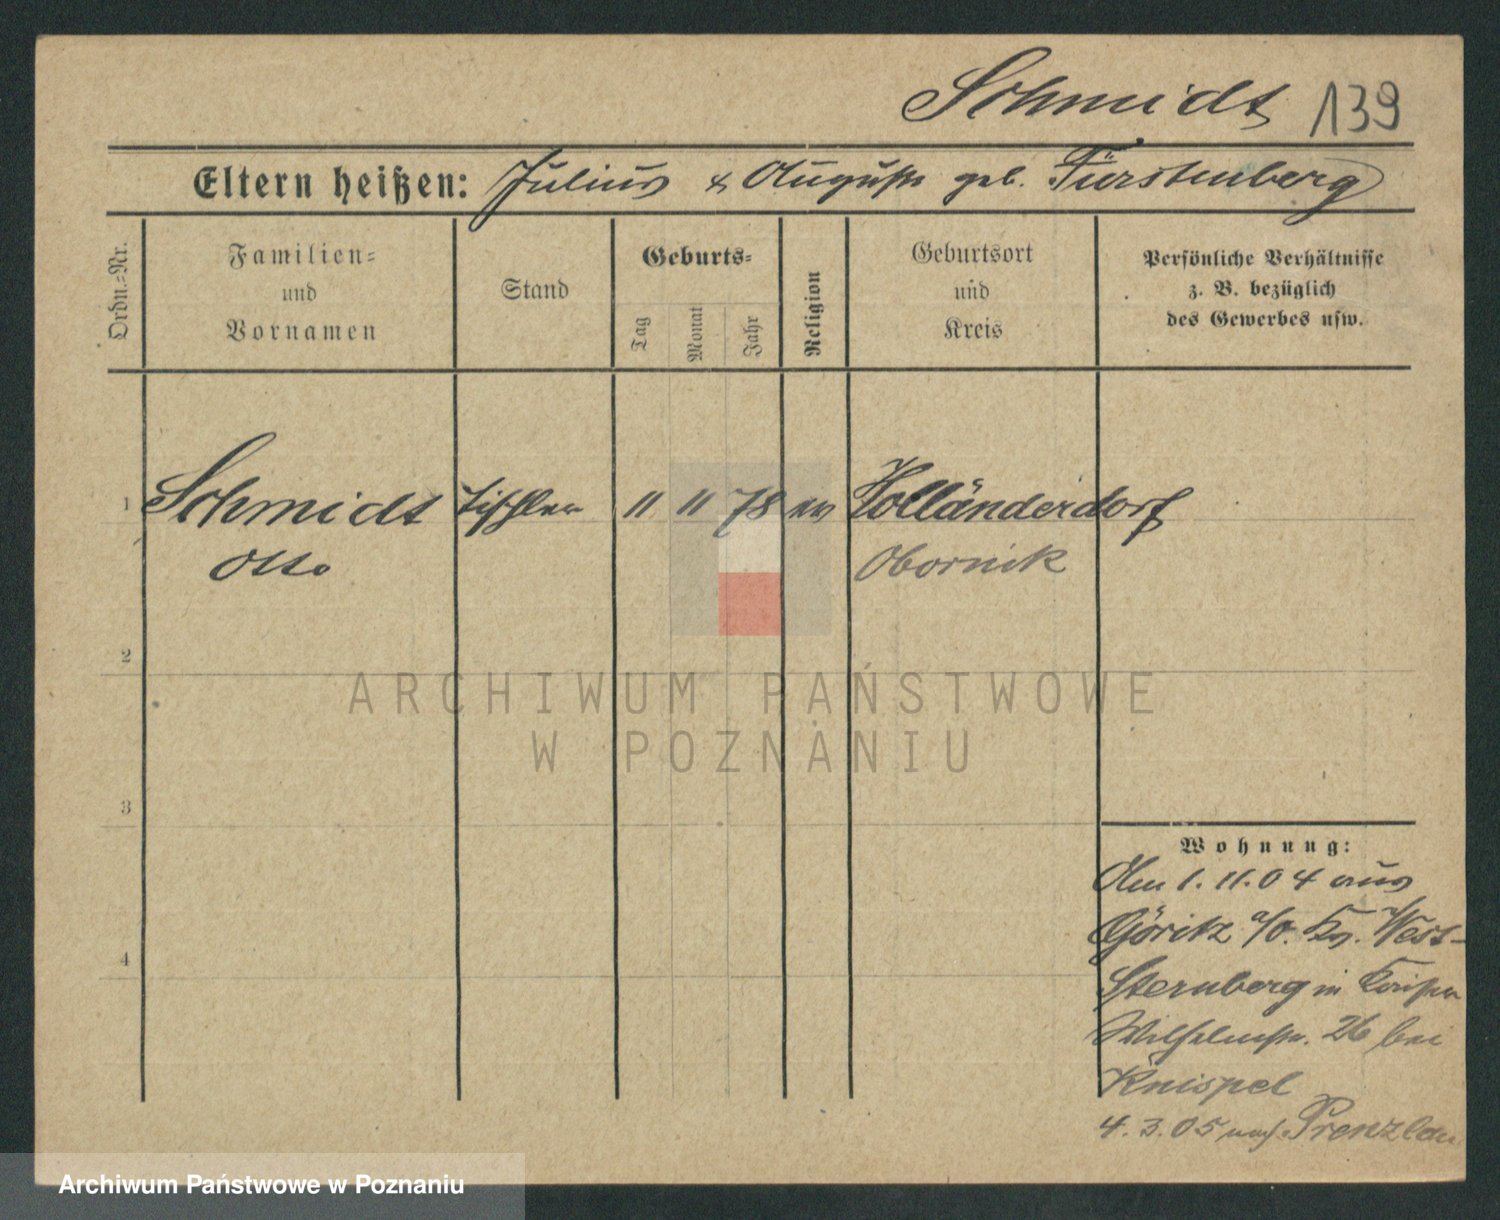 Schmidt 139
Eltern heißen: Julius & Auguste geb. Fürstenberg
Ordn.-Nr.
Familien-
und
Vornamen
Stand
Geburts-
Tag
Monat
Jahr
Religion
Geburtsort
und
Kreis
Persönliche Verhältnisse
z. B. bezüglich
des Gewerbes usw.
1 Schmidt Tischler 11 11 78 ev Holländerdorf
Otto Obornik
2
3
4
Wohnung:
Am 1.11.04 aus
Göritz a/O. Kr. West-
Sternberg in Kaiser
Wilhelmstr. 26 bei
Knispel
4.3.05 nach Prenzlau
ARCHIWUM PAŃSTWOWE
W POZNANIU
Archiwum Państwowe w Poznaniu